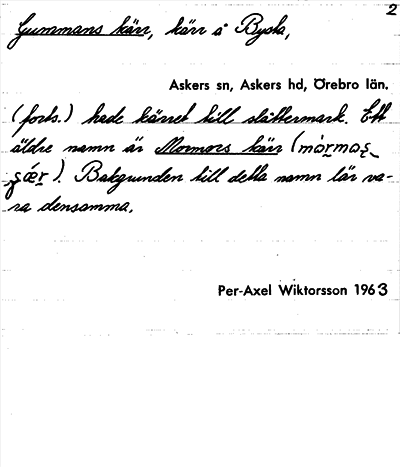 2
Gummans kärr, kärr å Bysta,
Askers sn, Askers hd, Örebro län.
(forts.) hade kärret till slåttermark. Ett
äldre namn är Mormors kärr
). Bakgrunden till detta namn lär va-
ra densamma.
Per-Axel Wiktorsson 1963